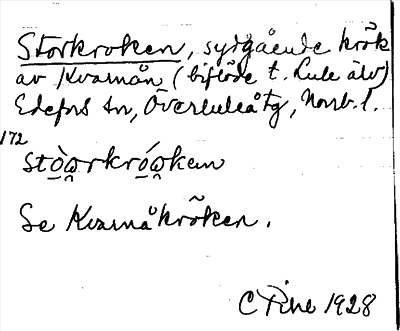 Storkroken, sydgående krök
av Kvarnån (biflöde t. Lule älv)
Edefors sn, Överluleå tg, Norrb. l.
172
stò̲ω̯rkró̲ω̯ken
Se Kvarnåkröken.
C 1928